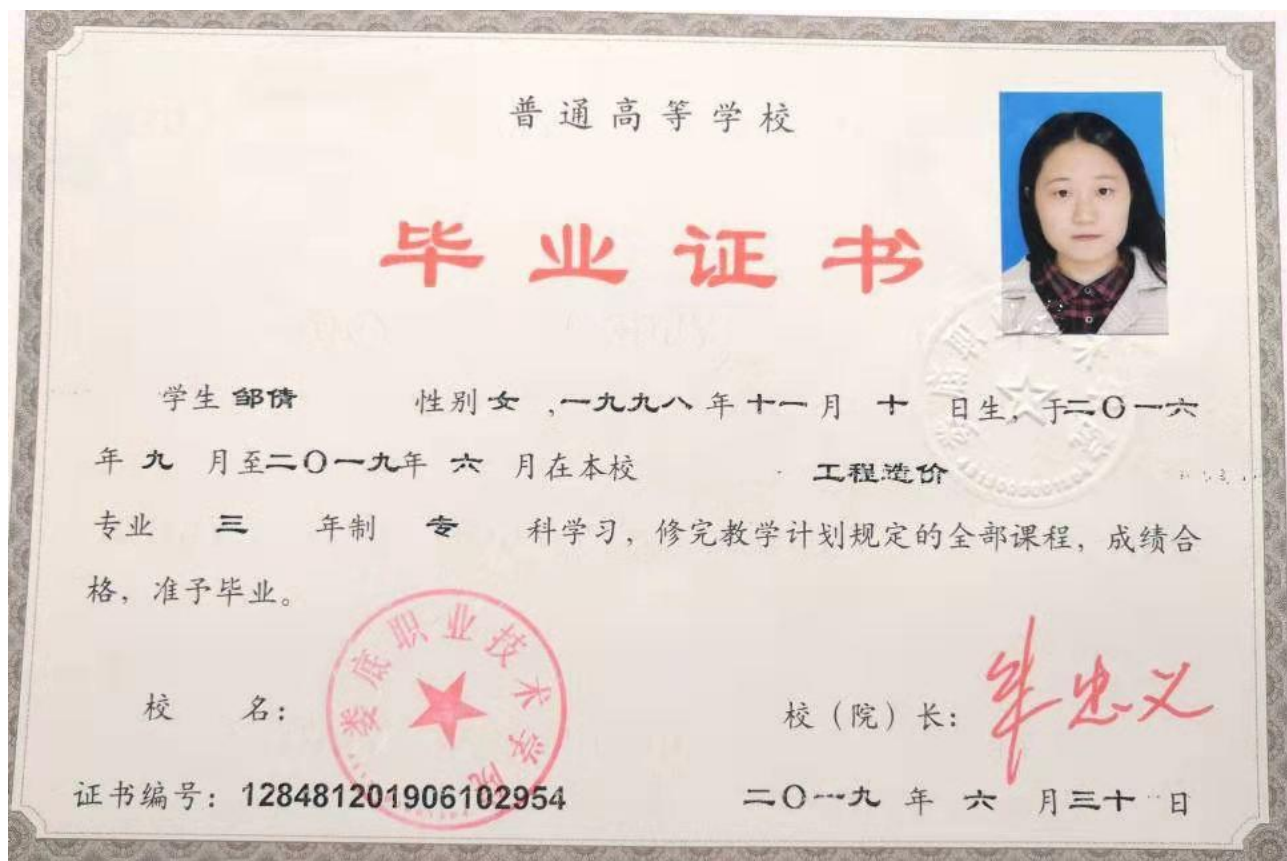 普通高等学校
毕业证书
学生 邹倩 性别 女 ,一九九八 年 十一 月 十 日生, 于二〇一六
年 九 月至二〇一九年 六 月在本校 工程造价
专业 三 年制 专 科学习, 修完教学计划规定的全部课程, 成绩合
格, 准予毕业。
娄底职业技术学院
校 名:
校 (院) 长:
证书编号: 128481201906102954
二〇一九 年 六 月三十 日